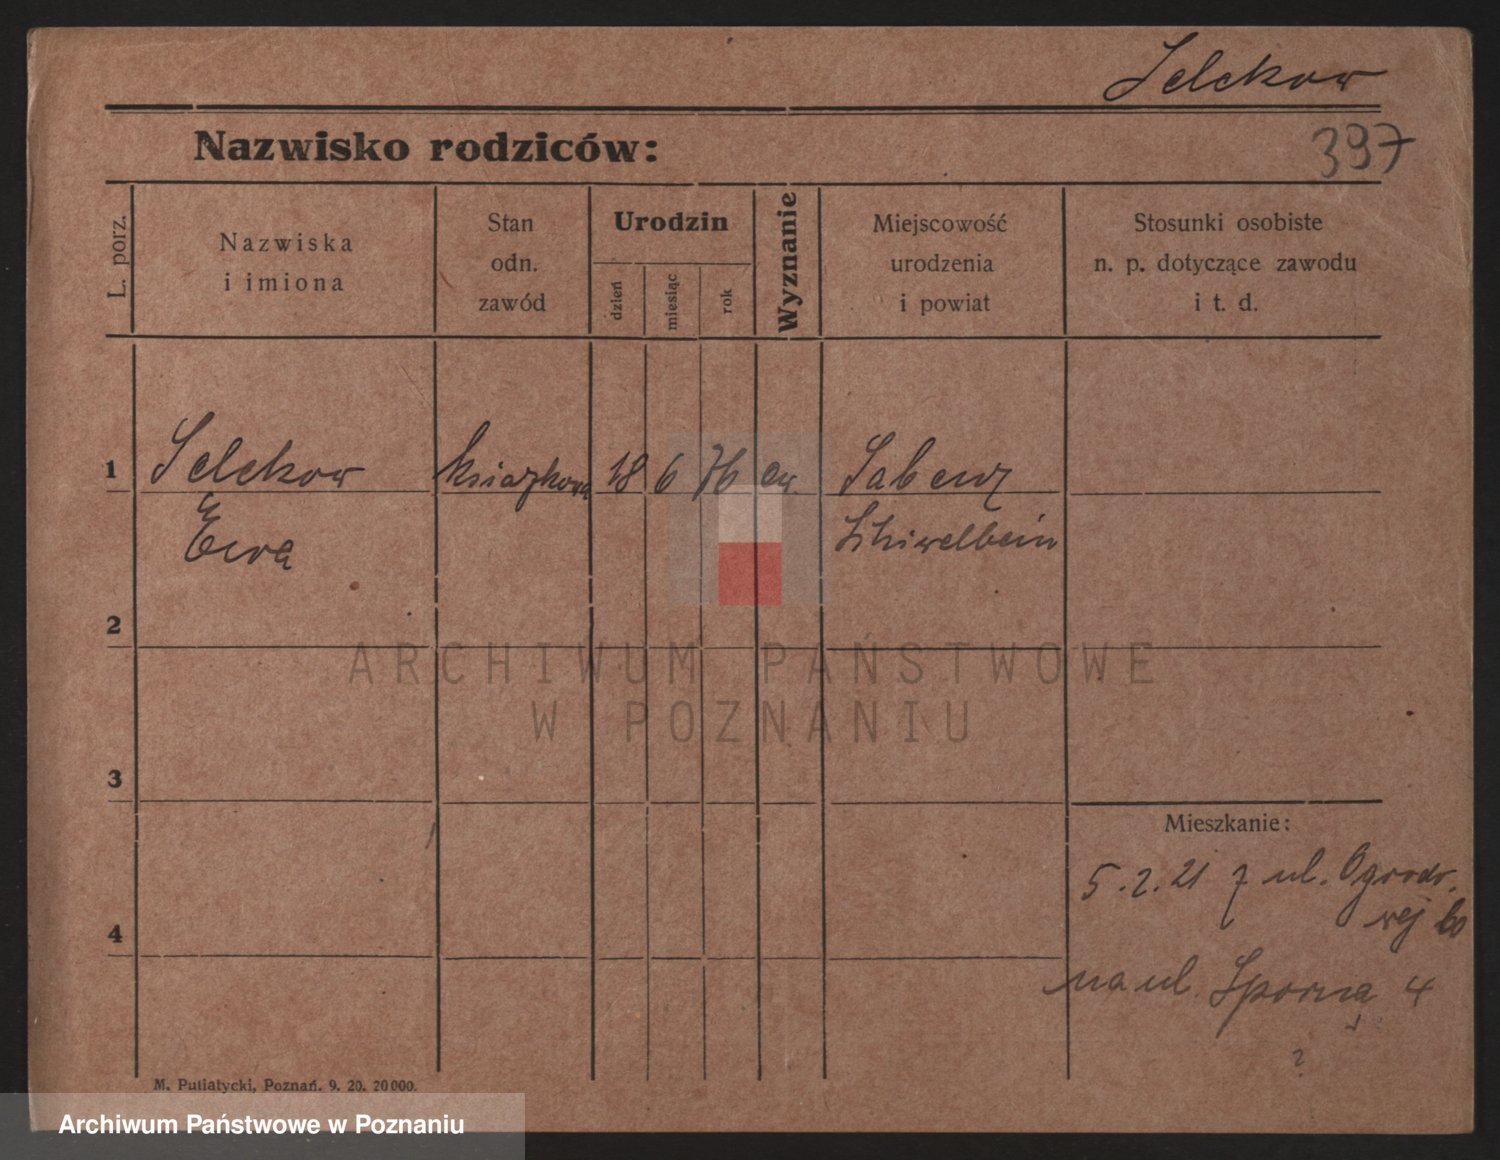 Selckow
Nazwisko rodziców:
397
L. porz.
Nazwiska
i imiona
Stan
odn.
zawód
Urodzin
dzień
miesiąc
rok
Wyznanie
Miejscowość
urodzenia
i powiat
Stosunki osobiste
n. p. dotyczące zawodu
i t. d.
1
Selckow
18
6
76
ew.
Ewa
2
ARCHIWUM PAŃSTWOWE
W POZNANIU
3
Mieszkanie:
5.2.21 z ul. Ogrodo-
wej
4
na ul. Sporną 4
?
M. Putiatycki, Poznań. 9. 20. 20000.
Archiwum Państwowe w Poznaniu